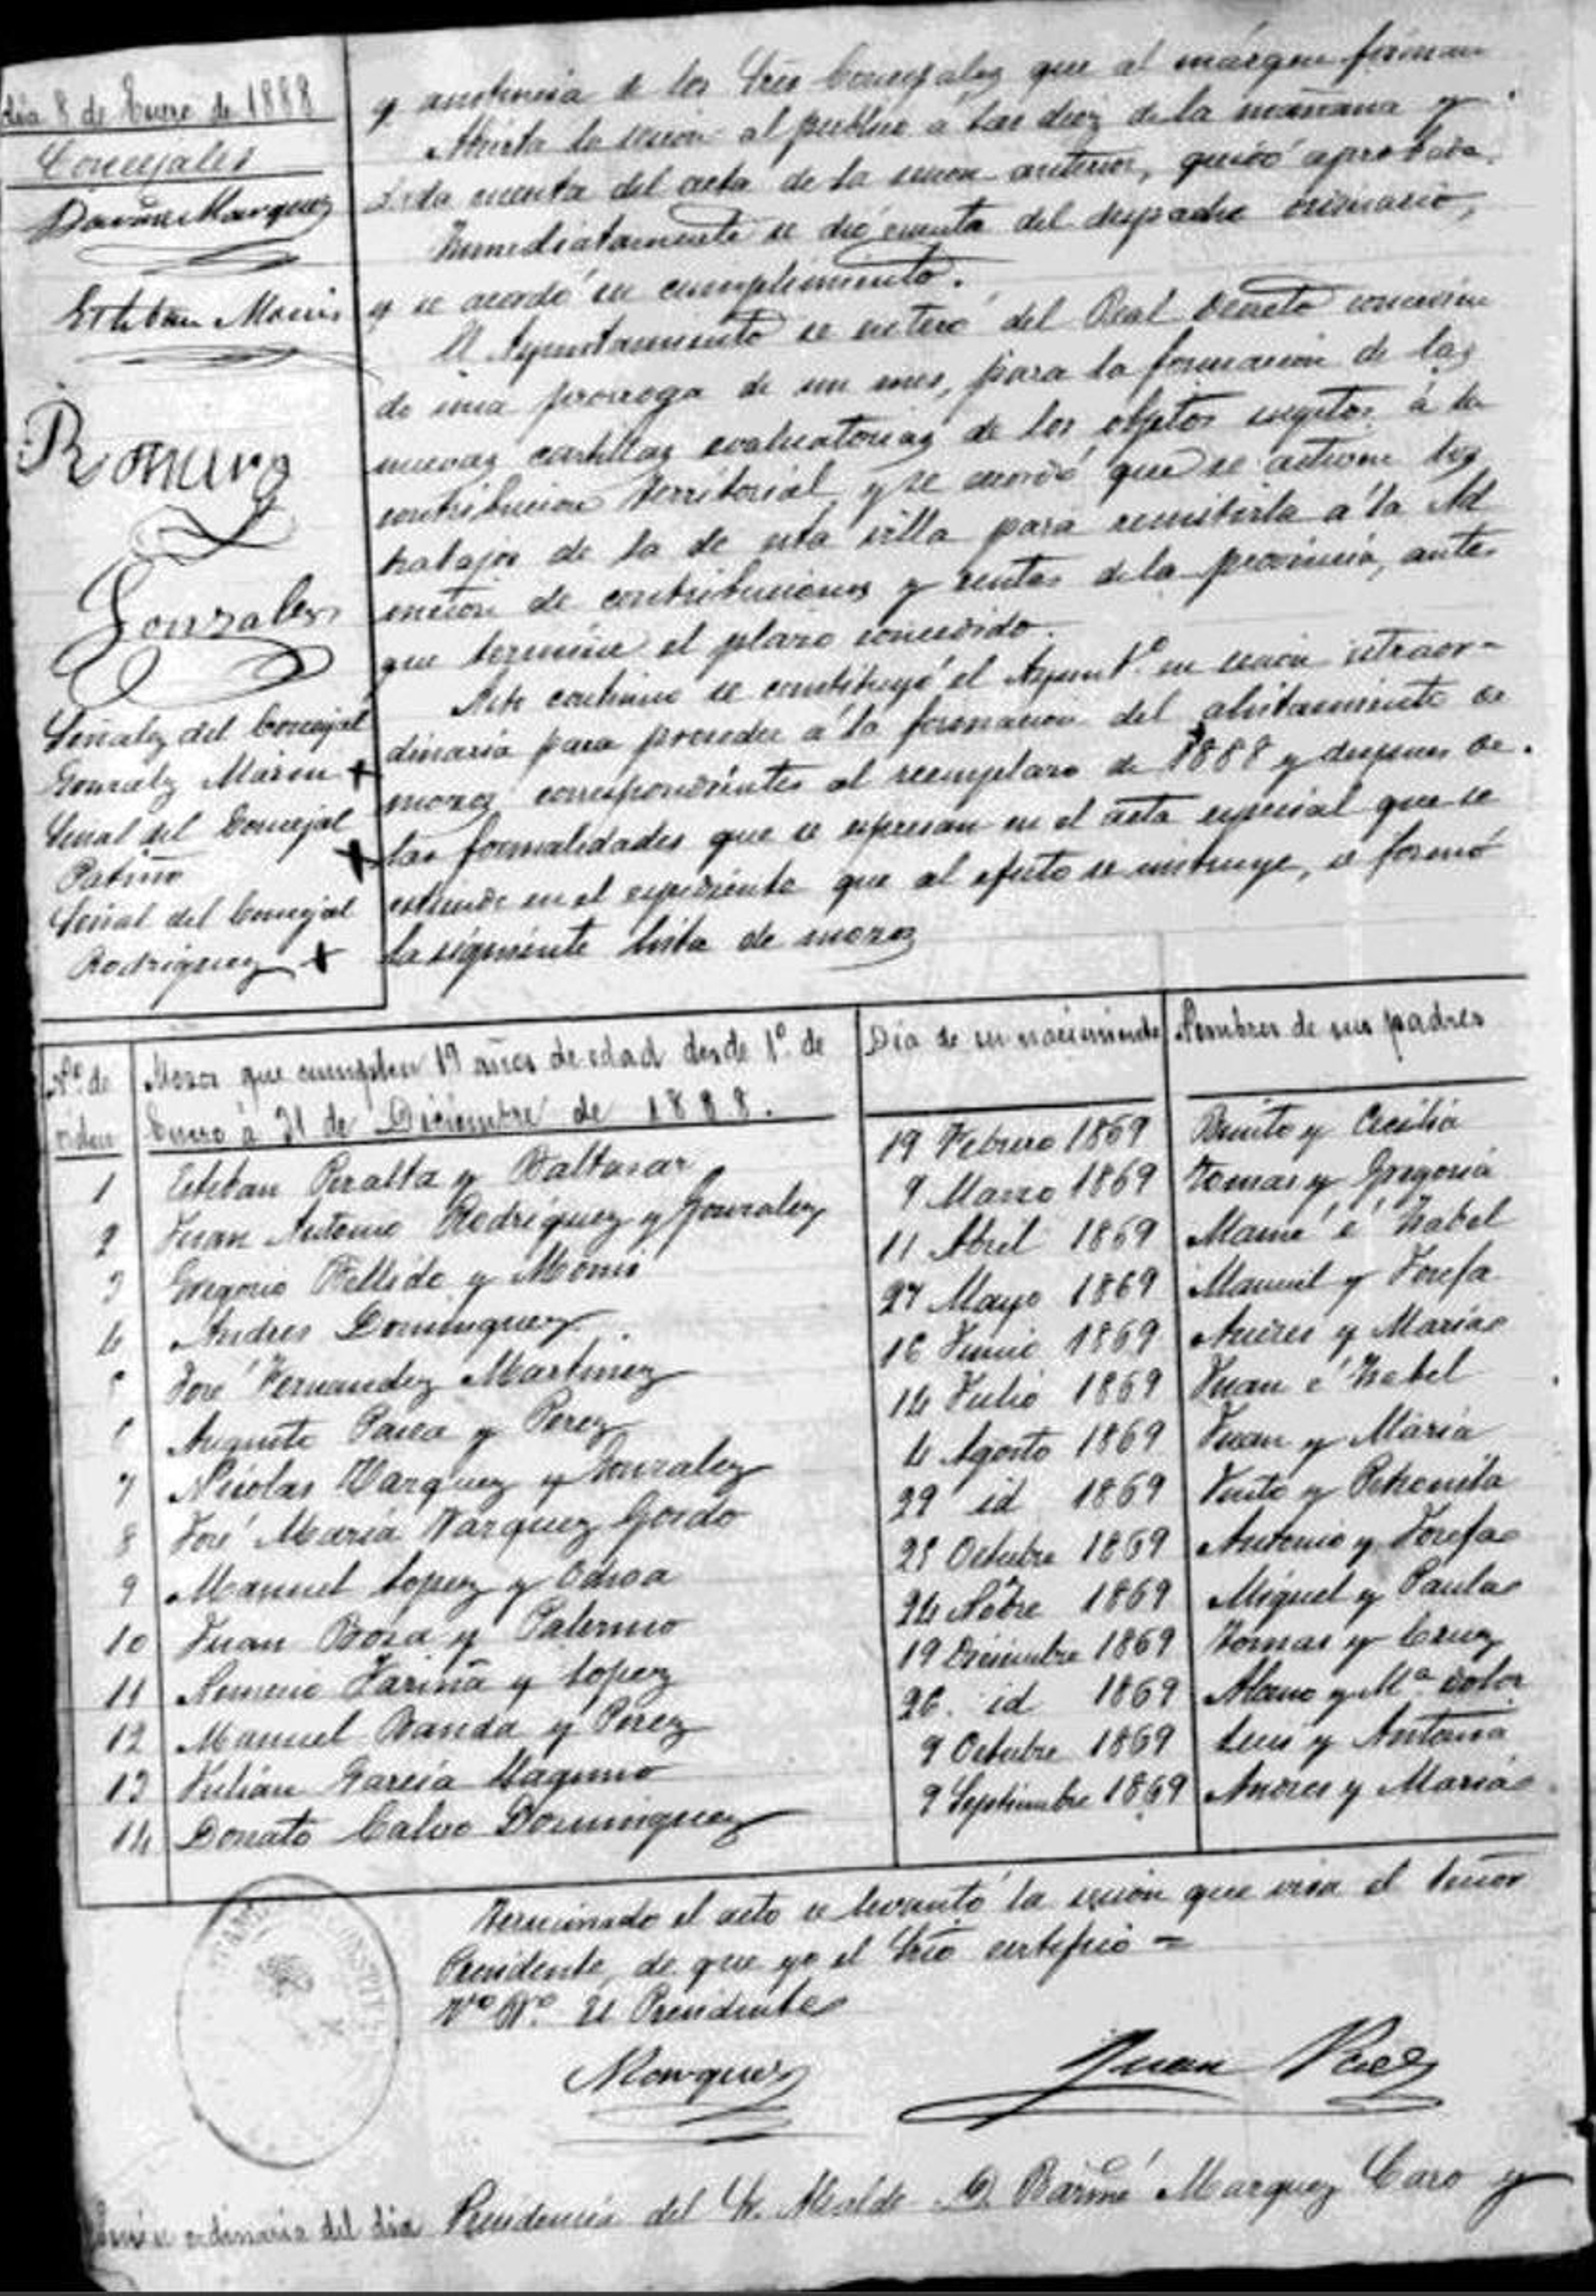 día 8 de Enero de 1888
Concejales
Marquez
Esteban Monis
Romero
Gonzalez
Señales del Concejal
Gonzalez Marin +
Señal del Concejal
Patiño +
Señal del Concejal
Rodriguez +
y asistencia de los Sres Concejales que al márgen firman
Abierta la sesion al publico á las diez de la mañana y
dada cuenta del acta de la sesion anterior, quedó aprobada.
Inmediatamente se dió cuenta del despacho ordinario,
y se acordó su cumplimiento.
El Ayuntamiento se enteró del Real Decreto concedien
do una prorroga de un mes, para la formacion de las
nuevas cartillas evaluatorias de los objetos sugetos á la
contribucion territorial, y se acordó que se activen los
trabajos de la de esta villa para remitirla á la Ad
mcion de contribuciones y rentas de la provincia, antes
que termine el plazo concedido.
Acto continuo se constituyó el Ayuntº en sesion estraor-
dinaria para proceder á la formacion del alistamiento de
mozos correspondientes al reemplazo de 1888 y despues de
las formalidades que se espresan en el acta especial que se
estiende en el espediente que al efecto se instruye, se formó
la siguiente lista de mozos
Nº de orden
Mozos que cumplen 19 años de edad desde 1º de
Enero á 31 de Diciembre de 1888.
Día de su nacimiento
Nombres de sus padres
1 Esteban Peralta y Baltasar 19 Febrero 1869 Benito y Cecilia
2 Juan Antonio Rodriguez y Gonzalez 9 Marzo 1869 Tomas y Gregoria
3 Gregorio Bellido y Monis 11 Abril 1869 é Isabel
4 Andres Dominguez 27 Mayo 1869 Manuel y Josefa
5 José Fernandez Martinez 16 Junio 1869 Andres y Maria
6 Augusto y Perez 14 Julio 1869 Juan é Isabel
7 Nicolas Marquez y Gonzalez 4 Agosto 1869 Juan y Maria
8 José Maria Vazquez Gordo 29 id 1869 Justo y Petronila
9 Manuel Lopez y Ochoa 25 Octubre 1869 Antonio y Josefa
10 Juan y Palermo 24 Nobre 1869 Miguel y Paula
11 Fariña y Lopez 19 Diciembre 1869 Tomas y Cruz
12 Manuel Banda y Perez 26. id 1869 y Mª Dolor
13 Julián Garcia 9 Octubre 1869 Luis y Antonia
14 Donato Calvo Dominguez 9 Septiembre 1869 Andres y Maria
Terminado el acto se levantó la sesion que visa el Señor
Presidente, de que yo el Srio certifico =
Vº Bº El Presidente
Marquez
Juan
Sesion ordinaria del dia
Presidencia del Sr. Alcalde D. Barmé Marquez Caro y